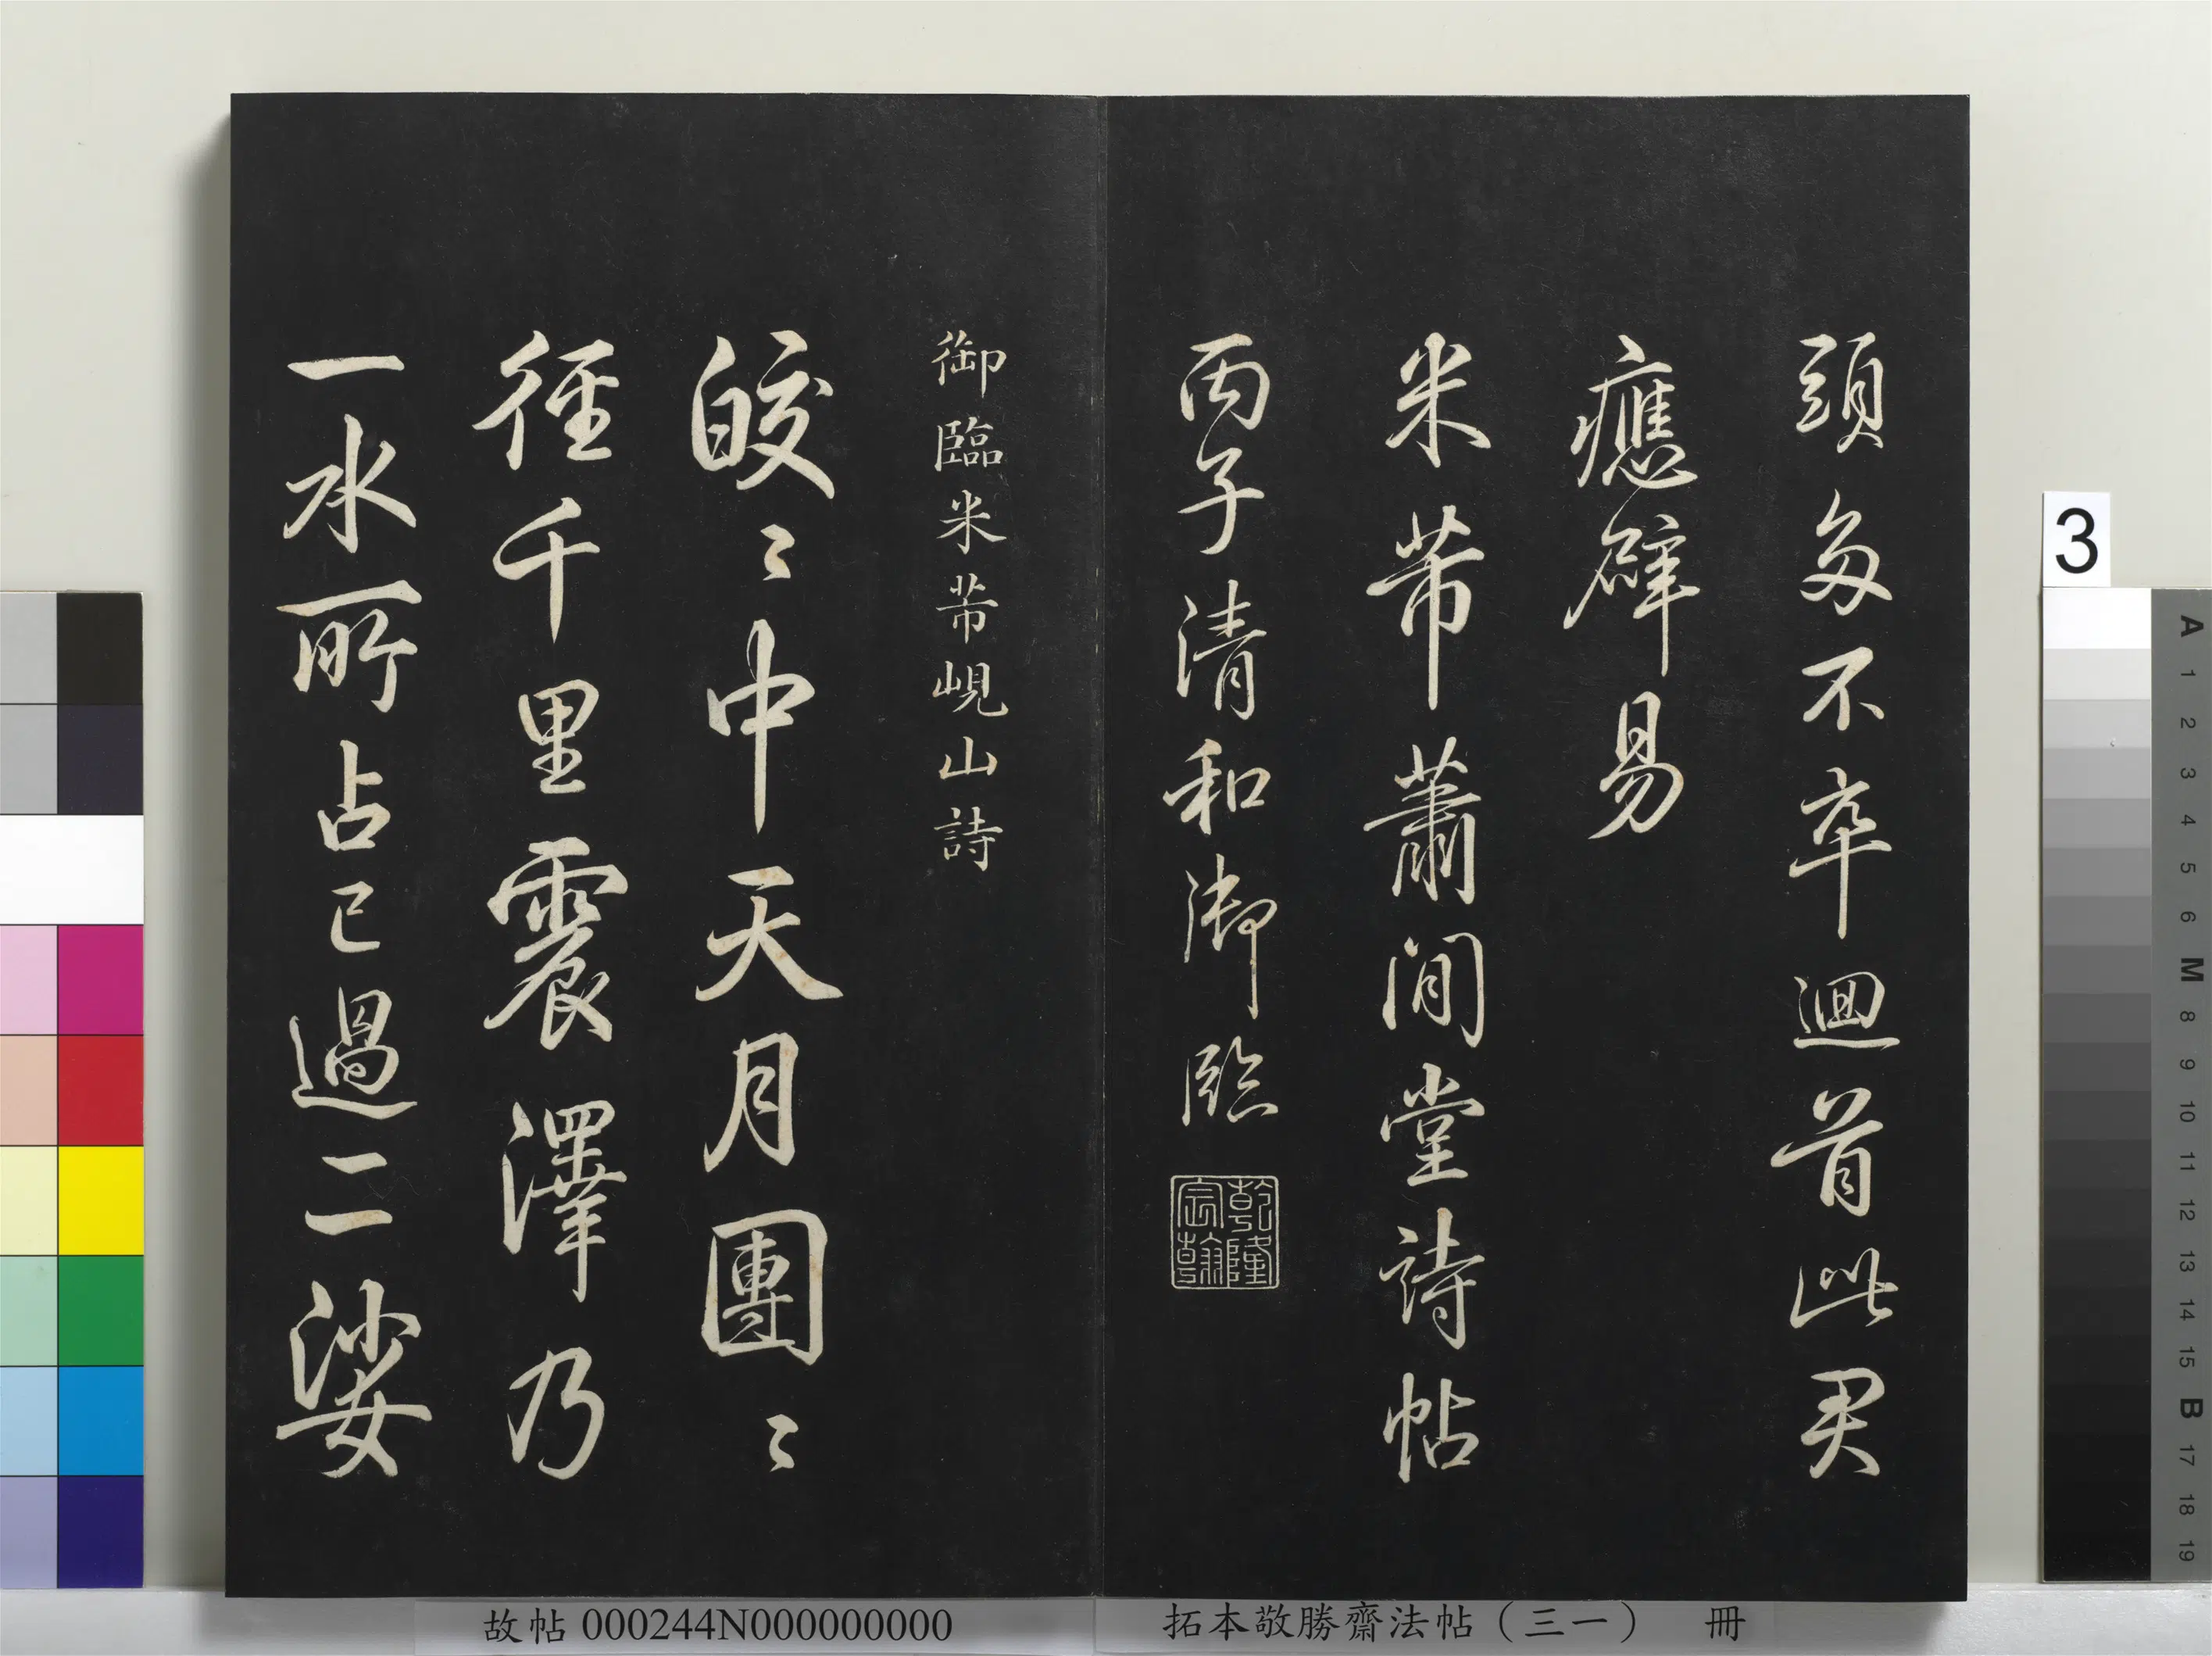 頭多不卒迴首此君
應辟易
米芾蕭閒堂詩帖
丙子清和御臨
乾隆宸翰
御臨米芾峴山詩
皎〻中天月團〻
徑千里震澤乃
一水所占已過二娑
故帖 000244N000000000
拓本敬勝齋法帖（三一） 冊
3
A
1
2
3
4
5
6
M
8
9
10
11
12
13
14
15
B
17
18
19